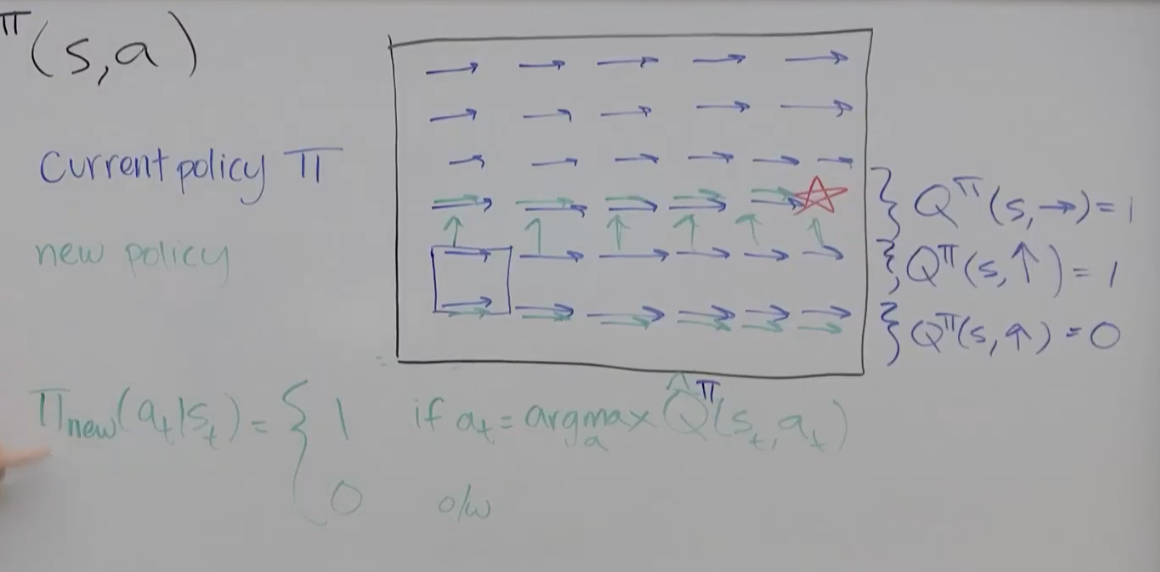 π(s,a)
Current policy π
new policy
Q^π(s,→)=1
Q^π(s,↑)=1
Q^π(s,↑)=0
π_new(a_t|s_t) = { 1 if a_t = argmax_a Q̂^π(s_t,a_t)
0 o/w